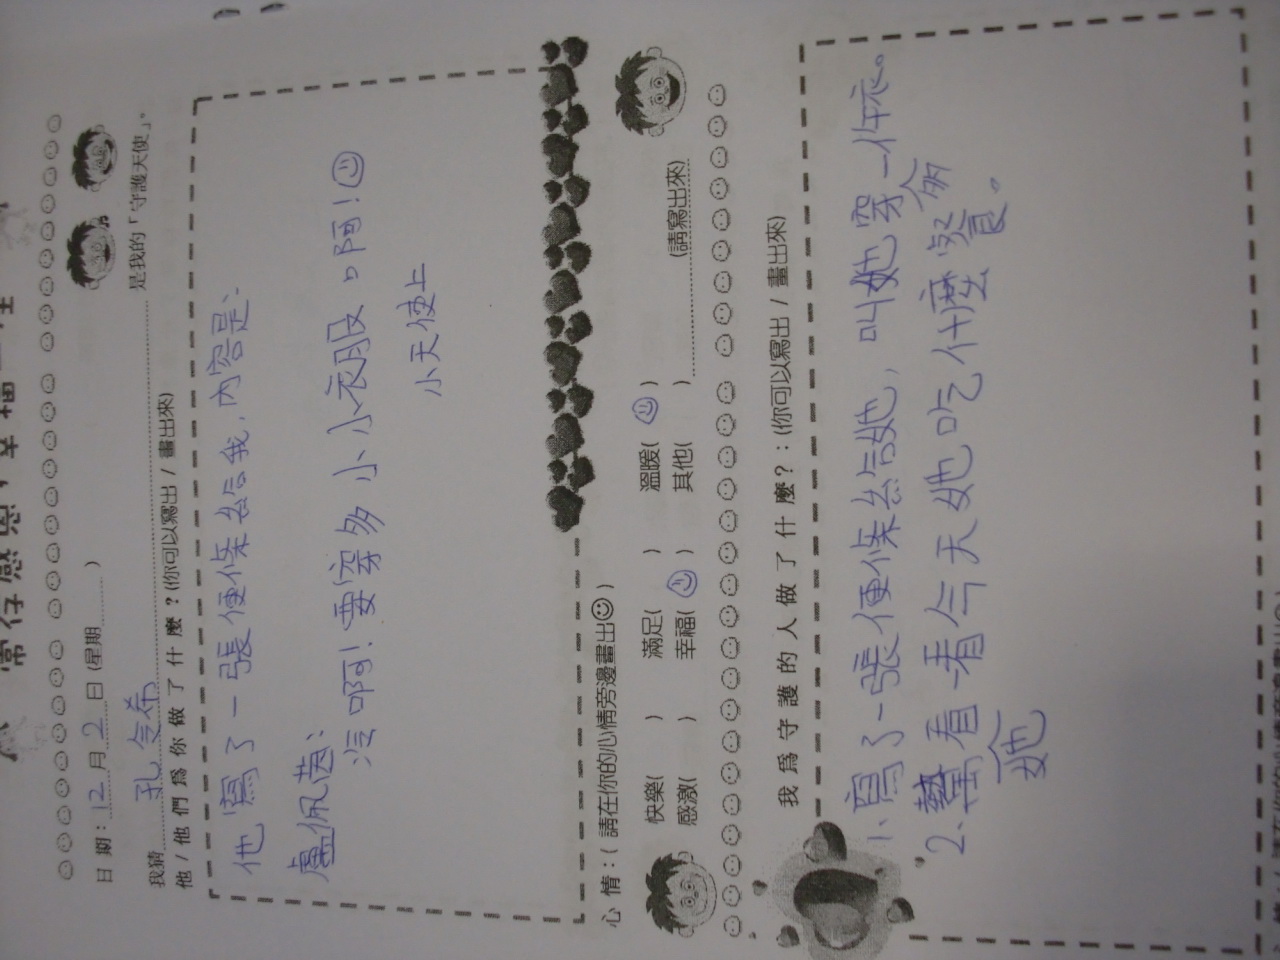 常存感恩，幸福一生
日期：12月2日(星期 )
我猜 孔令希 是我的「守護天使」。
他/他們為你做了什麼？(你可以寫出/畫出來)
他寫了一張便條給我，內容是：
盧佩茵、
冷啊！要穿多小小衣服口啊！
小天使上
心情：(請在你的心情旁邊畫出☺)
快樂( ) 滿足( ) 溫暖(☺)
感激( ) 幸福(☺) 其他( ) (請寫出來)
我為守護的人做了什麼？：(你可以寫出/畫出來)
1、寫了一張便條給她，叫她穿多一件衣。
2、看她一看今天她吃什麼餐。